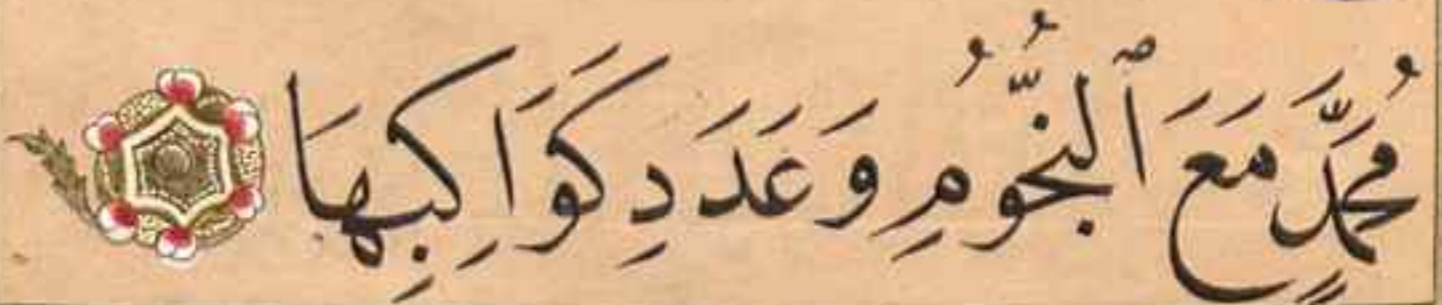 مُحَمَّدٍ مَعَ ٱلنُّجُومِ وَعَدَدِ كَوَاكِبِهَا